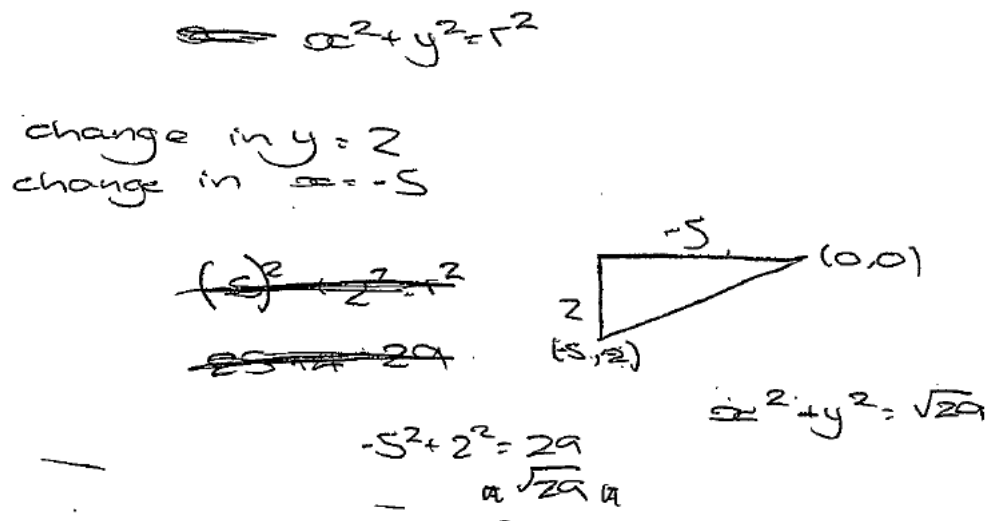 x²+y²=r²
change in y = 2
change in x = -5
(-5)²+2²=r²
25+4=29
-5
(0,0)
2
(-5,-2)
x²+y²=√29
-5²+2²=29
√29